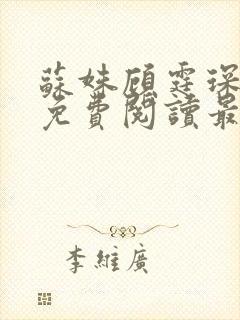 蘇妹顧霆琛
免費閱讀最
李維廣